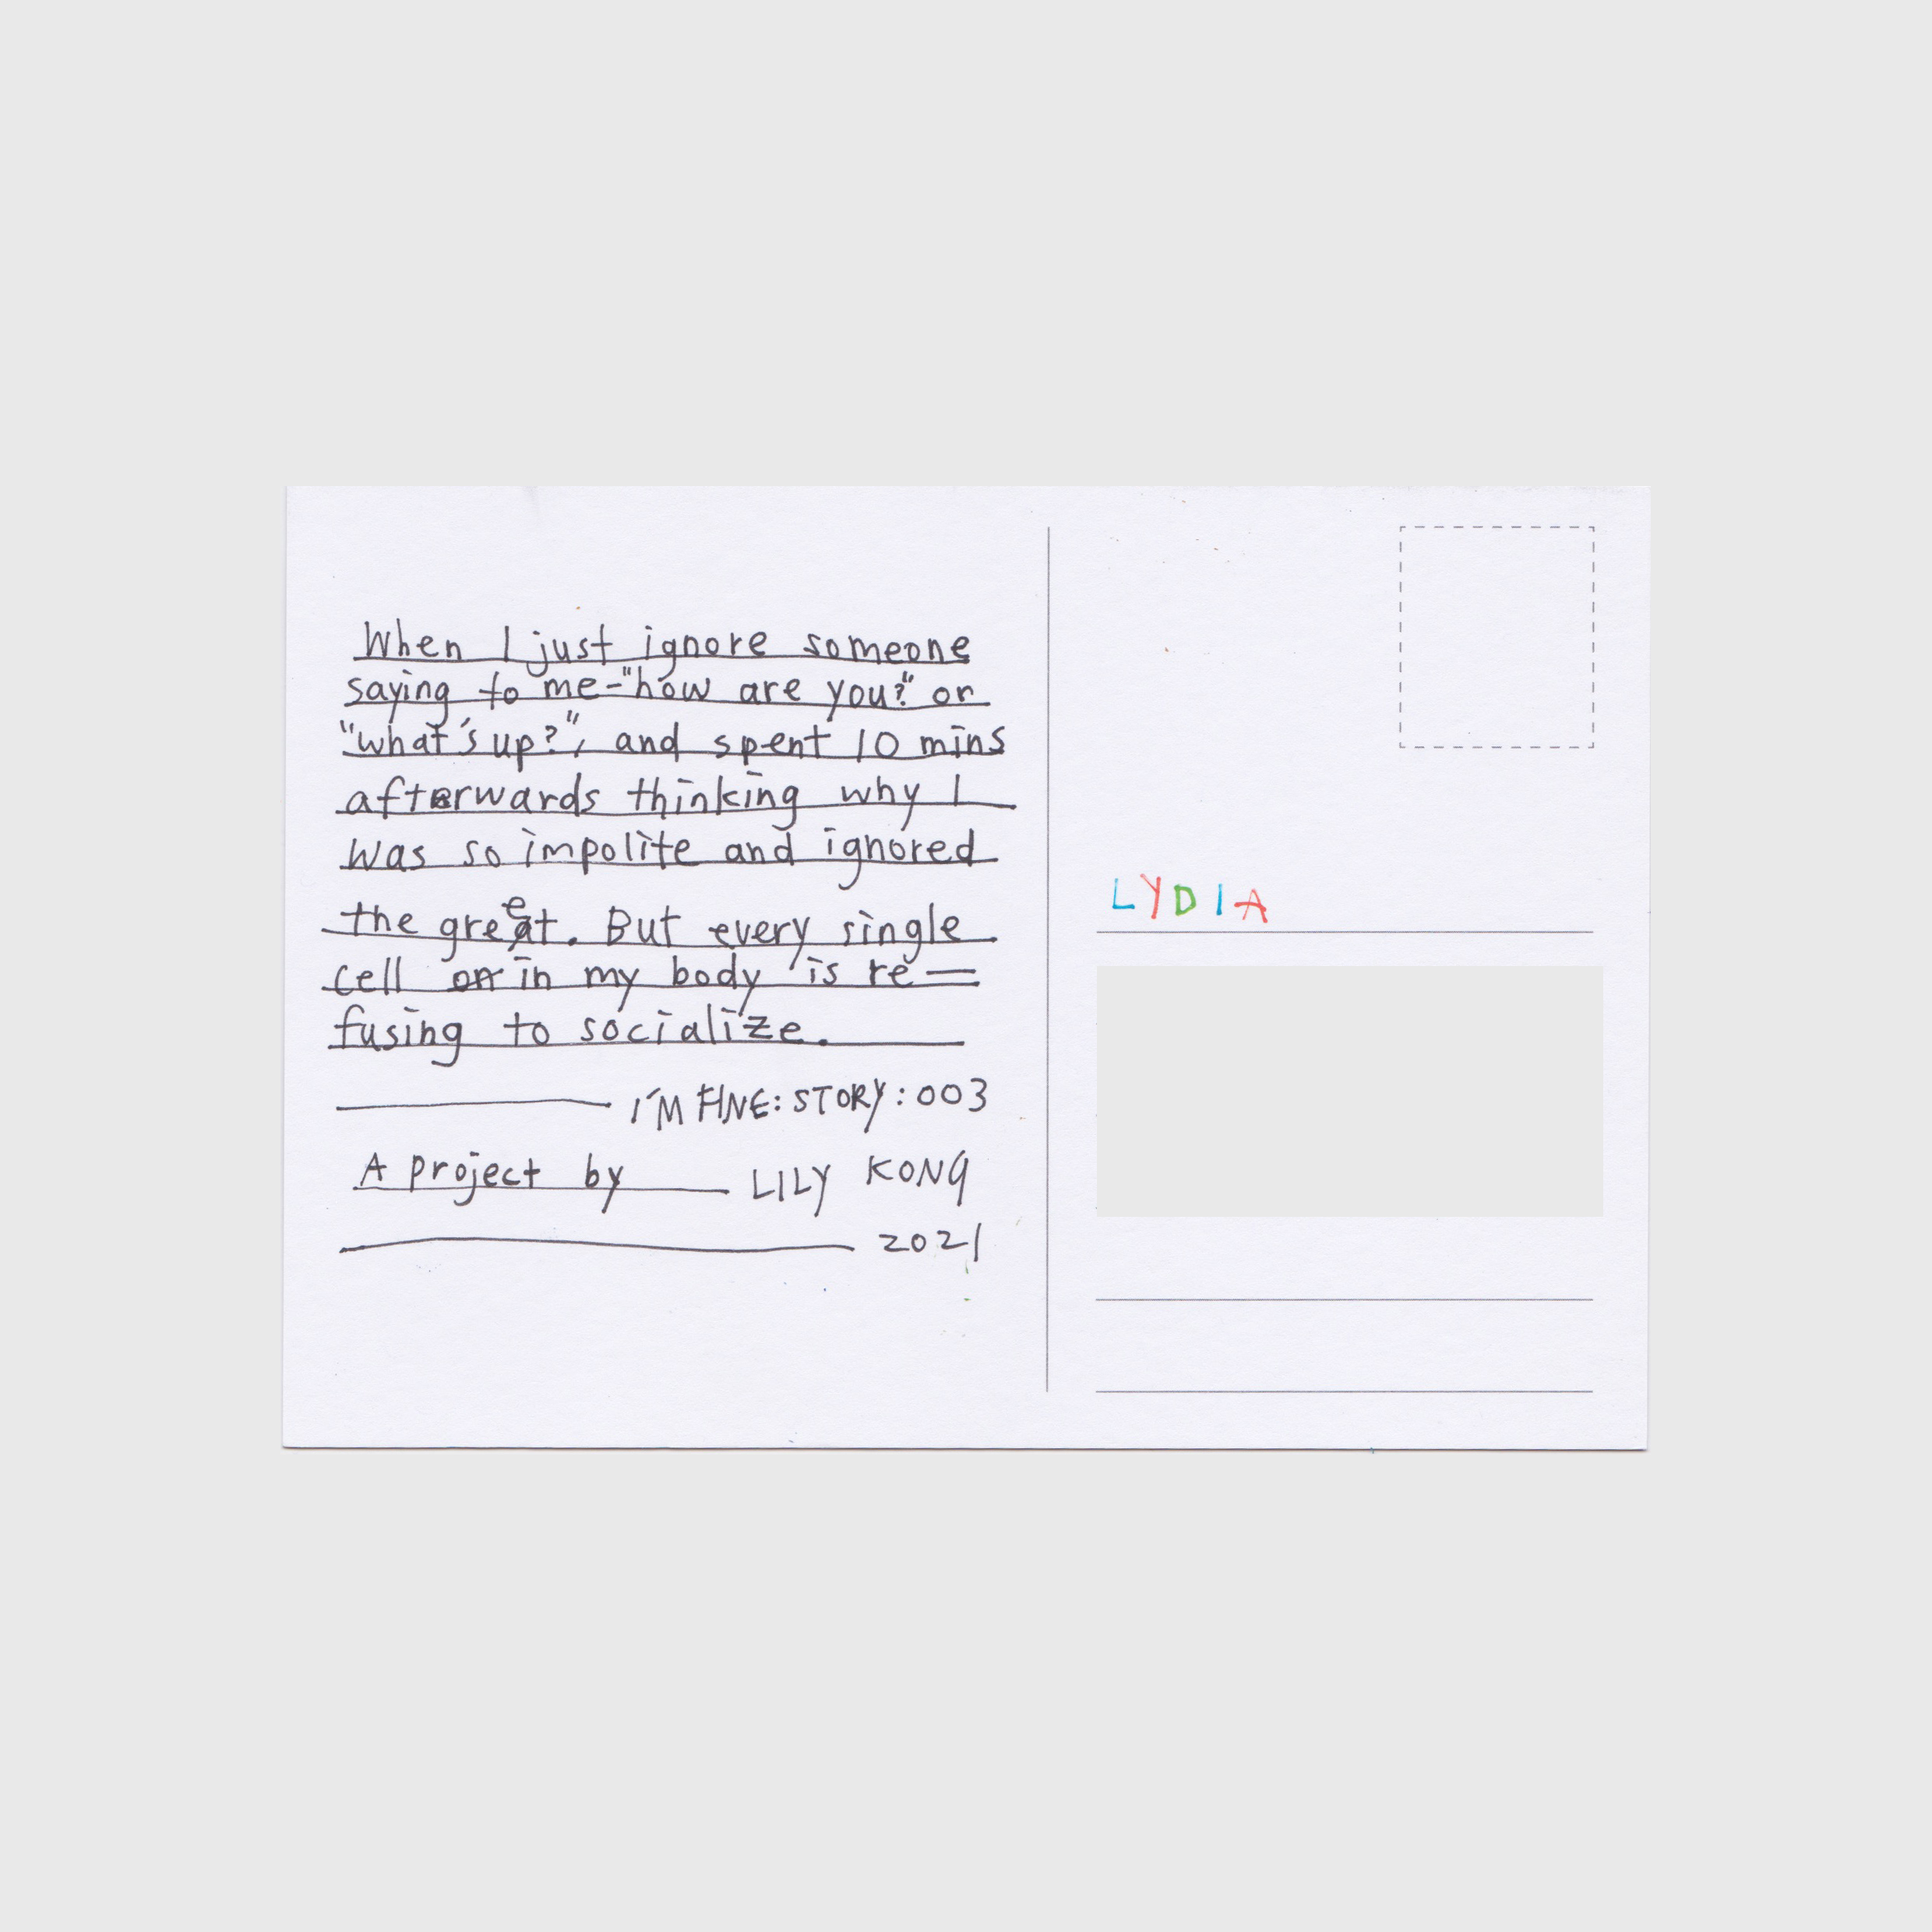 When I just ignore someone
saying to me-"how are you?" or
"what's up?", and spent 10 mins
afterwards thinking why I
was so impolite and ignored
the greet. But every single
cell on in my body is re-
fusing to socialize.
I'M FINE: STORY: 003
A project by LILY KONG
2021
LYDIA